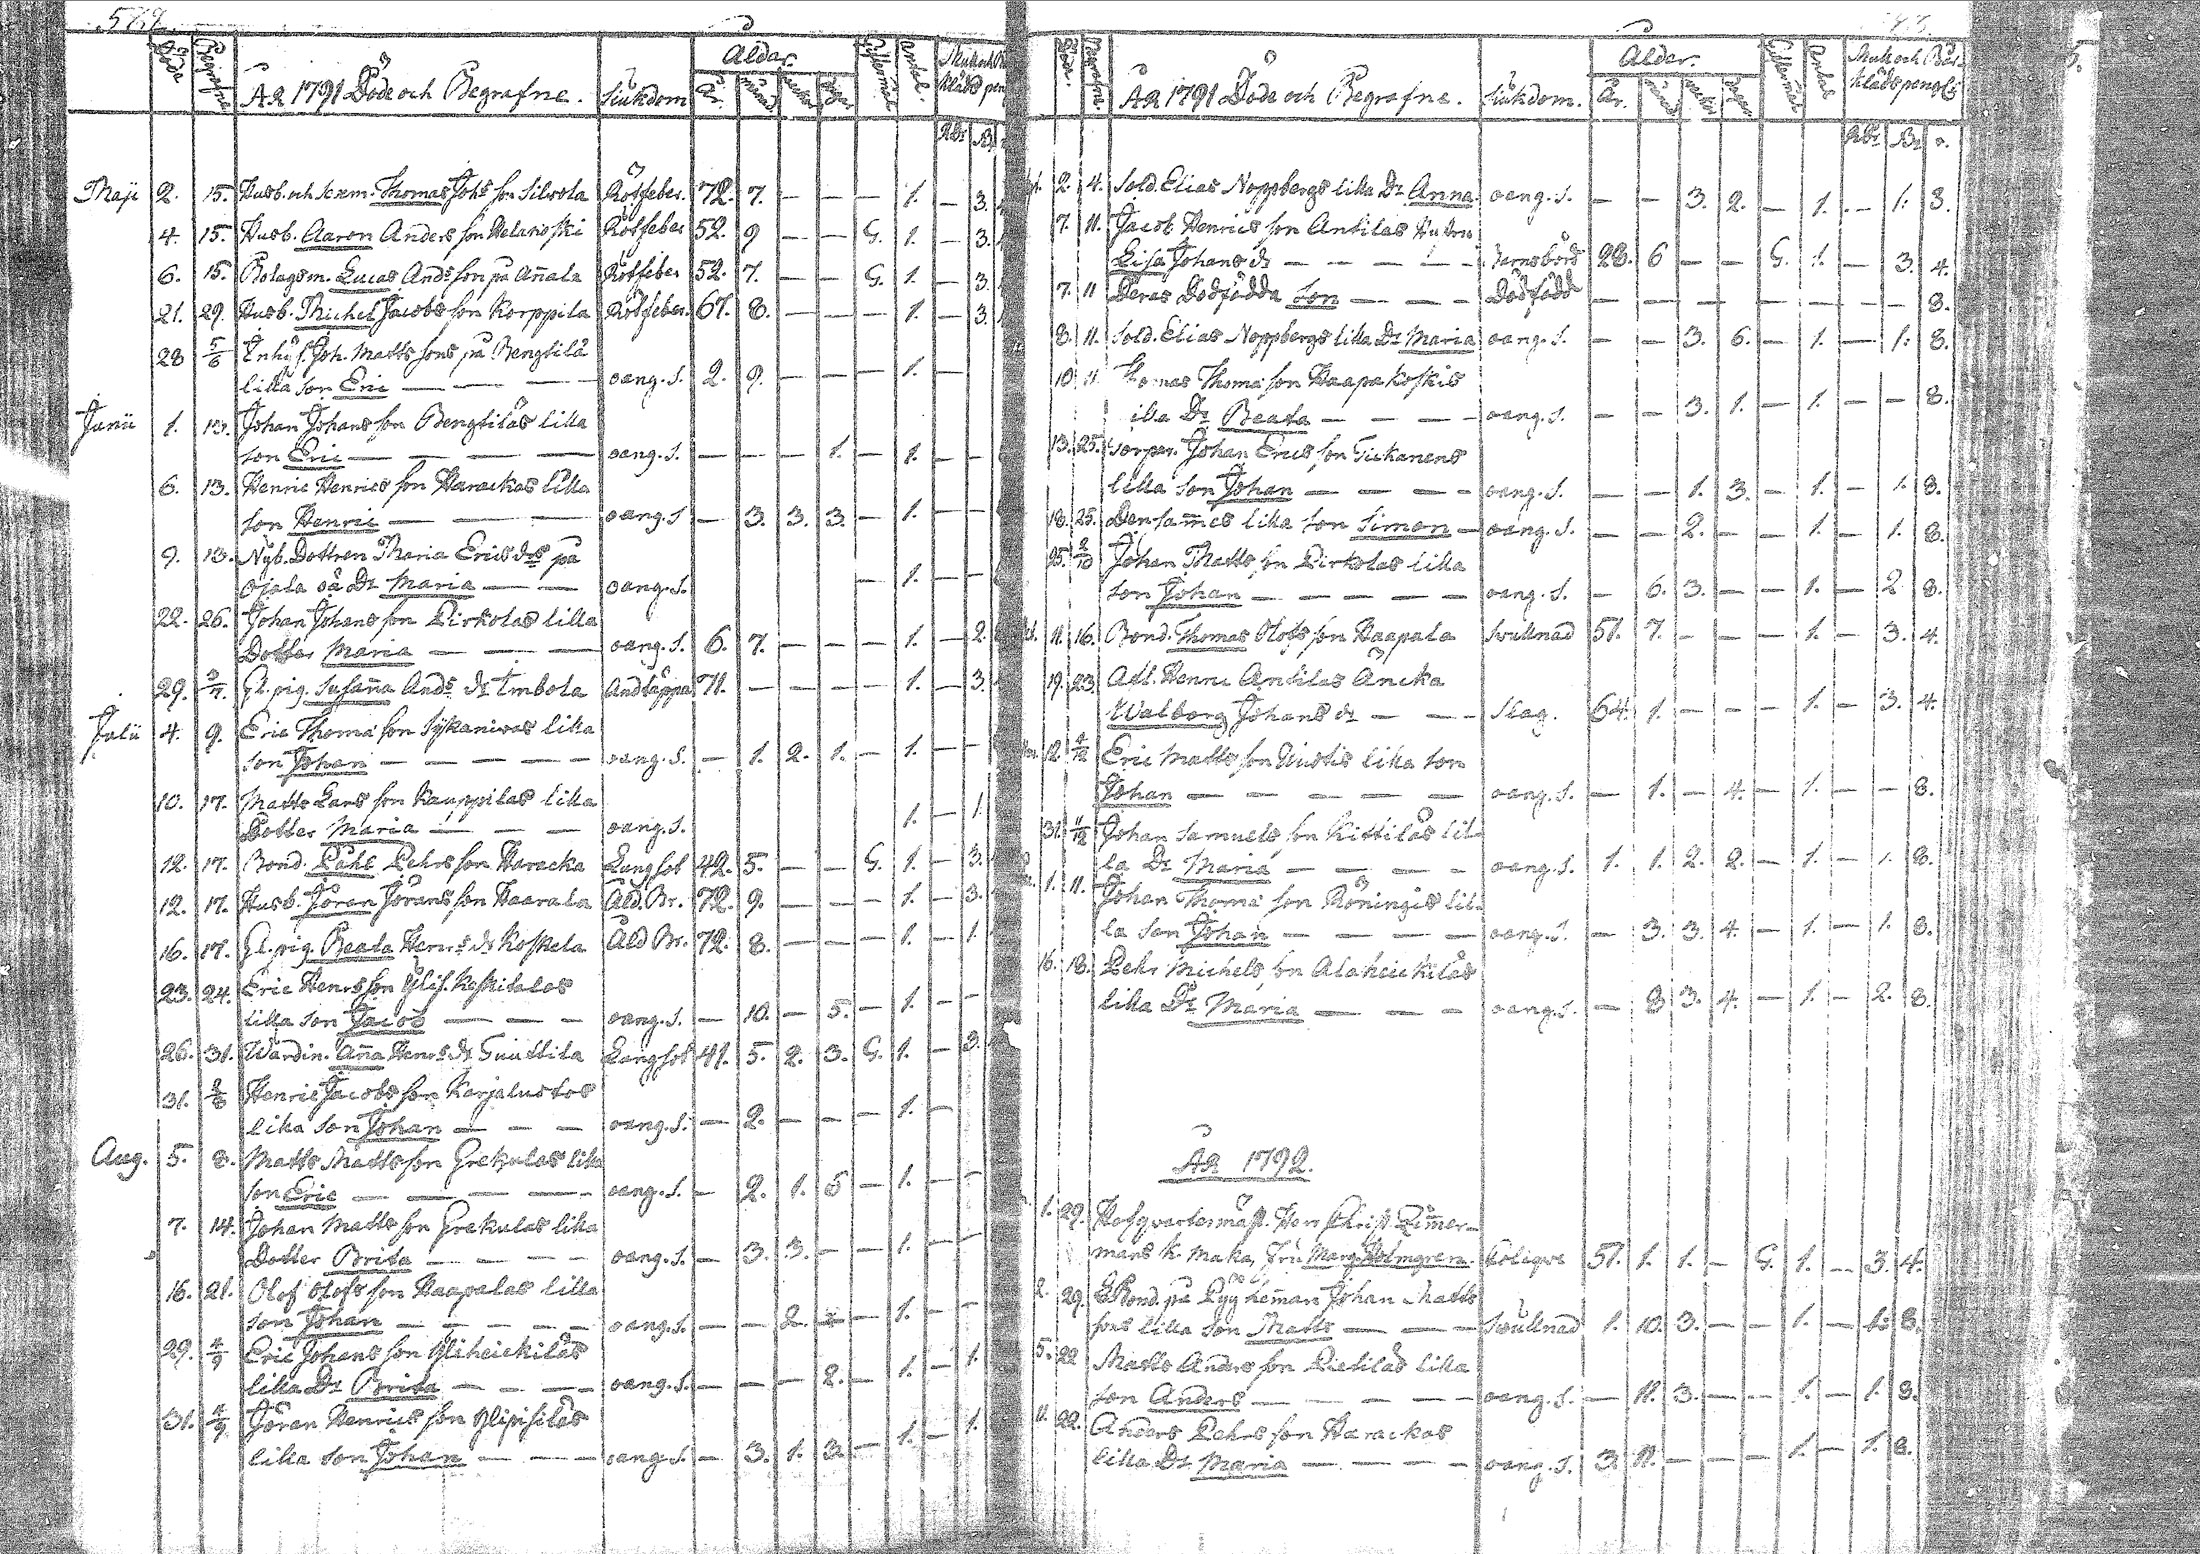 589.
Döde Begrafne ÅR 1791 Döde och Begrafne. Siukdom Ålder. År. månad. veckor dagar Gifte mål Antal.
Rdr
Maji 2. 15. Husb. och Sexm. Thomas Johs son Silvola Rötfeber. 72. 7. — — — 1. — 3.
4. 15. Husb. Aaron Anders son Helanoski Rötfeber 52. 9 — — G. 1. — 3.
6. 15. Bolagsm. Lucas Ands son på Añala Rötfeber 52. 7. — — G. 1. — 3.
21. 29. Husb. Michel Jacobs son Korppila Rötfeber. 67. 8. — — — 1. — 3.
28 5/6 Inhys. Joh. Matts sons på Bengtila
lilla son Eric — — — oang. S. 2. 9. — 1. —
Junii 1. 13. Johan Johans son Bengtilas lilla
son Eric — — — — oang. S. — — — 1. — 1. —
6. 13. Henric Henrics son Harackas lilla
son Henric — — — oang. S — 3. 3. 3. — 1. —
9. 13. Nyb. Dottren Maria Erics drs på
Ojala oä Dr Maria — — oang. S. — 1. —
22. 26. Johan Johans son Pirkolas lilla
Dotter Maria — — — oang. S. 6. 7. — — — 1. — 2.
29. 3/7 Gl. pig. Susaña Ands dr Imbola Andtäppa 71. — — — — 1. — 3.
Julii 4. 9. Eric Thomæ son Sykaniwas lilla
son Johan — — — — — oang. S. — 1. 2. 1. — 1. — —
10. 17. Matts Lars son Kauppilas lilla
Dotter Maria — — — oang. S. 1. — 1.
12. 17. Bond. Påhl Pehrs son Haracka Lungsot 42. 5. — — G. 1. — 3.
12. 17. Husb. Jöran Jörans son Haarala Åld. Br. 72. 9. — — — 1. — 3.
16. 17. Gl. pig. Beata Henrs dr Koskela Åld Br. 72. 8. — — — 1. — 1.
23. 24. Eric Henrs son Ylis. Koskitalos
lilla son Jacob — — — oang. S. — 10. — 5. — 1. — —
26. 31. Wärdin. Aña Henrs dr Tuuttila Lungsot 41. 5. 2. 3. G. 1. — 3.
31. 8 Henric Jacobs son Karjaluotos
lilla son Johan — — — oang. S. — 2. — — — 1. —
Aug. 5. 8. Matts Matts son Grekulas lilla
son Eric — — — — oang. S. — 2. 1. 5 — 1. — —
7. 14. Johan Matts son Grekulas lilla
Dotter Brita — — — — oang. S. — 3. 3. — — 1. — —
16. 21. Olof Olofs son Haapalas lilla
son Johan — — — — — oang. S. — — 2. — 1. — —
29. 4/9 Eric Johans son Yliheickiläs
lilla Dr Brita — — — — oang. S. — — — 2. — 1. — 1.
31. 4/9 Jöran Henrics son Ylipisiläs
lilla son Johan — — — oang. S. — 3. 1. 3. — 1. — 1.
Döde Begrafne. ÅR 1791 Döde och Begrafne. Siukdom. Ålder. År. månad veckor dagar Gifte mål Antal Mull och Bår-
klädspeng
Rdr
2. 4. Sold. Elias Noppbergs lilla Dr Anna. oang. S. — — 3. 2. — 1. — 1. 8.
7. 11. Jacob Henrics son Antilas Hustru
Lisa Johans dr — — — — Barnsbörd 28. 6 — — G. 1. — 3. 4.
7. 11 Deras Dödfödda son — — — Dödfödd — — — — — — — 8.
8. 11. Sold. Elias Noppbergs lilla Dr Maria oang. S. — — 3. 6. — 1. — 1. 8.
10 11. Thomas Thomæ son Haapakoskis
lilla Dr Beata — — — — oang. S. — — 3. 1. — 1. — — 8.
13. 25. Torpar. Johan Erics son Tickanens
lilla son Johan — — — — oang. S. — — 1. 3. — 1. — 1. 8.
18. 25. Den sam̃es lilla son Simon — oang. S. — — 2. — — 1. — 1. 8.
25. 2/10 Johan Matts son Pirkolas lilla
son Johan — — — — — oang. S. — 6. 3. — — 1. — 2. 8.
11. 16. Bond. Thomas Olofs son Haapala Svullnad 51. 7. — — — 1. — 3. 4.
19. 23. Afl. Henric Antilas Äncka
Walborg Johans dr — — — Slag. 64. 1. — — — 1. — 3. 4.
12. 4/12 Eric Matts son lilla son
Johan — — — — — oang. S. — 1. — 4. — 1. — — 8.
31. 11/12 Johan Samuels son Kittiläs lil-
la Dr Maria — — — — oang. S. 1. 1. 2. 2. — 1. — 1. 8.
1. 11. Johan Thomæ son Röningis lil-
la son Johan — — — — oang. S. — 3. 3. 4. — 1. — 1. 8.
16. 18. Pehr Michels son Alaheickiläs
lilla Dr Maria — — — oang. S. — 8 3. 4. — 1. — 2. 8.
ÅR 1792.
1. 29. Hofqvartermäst. Herr Christ. Zim̃er-
mans k. maka, Fru Marg. Holmgren. Kolique 51. 1. 1. — G. 1. — 3. 4.
2. 29. Bond. på Pyy hem̃an Johan Matts
sons lilla son Matts — — — Svullnad 1. 10. 3. — — 1. — 1. 8.
5. 22 Matts Anders son Pietiläs lilla
son Anders — — — — — oang. S. — 11. 3. — — 1. — 1. 8.
11. 22. Anders Pehrs son Harackas
lilla Dr Maria — — — — oang. S. 3. 11. — — — 1. — 1. 8.